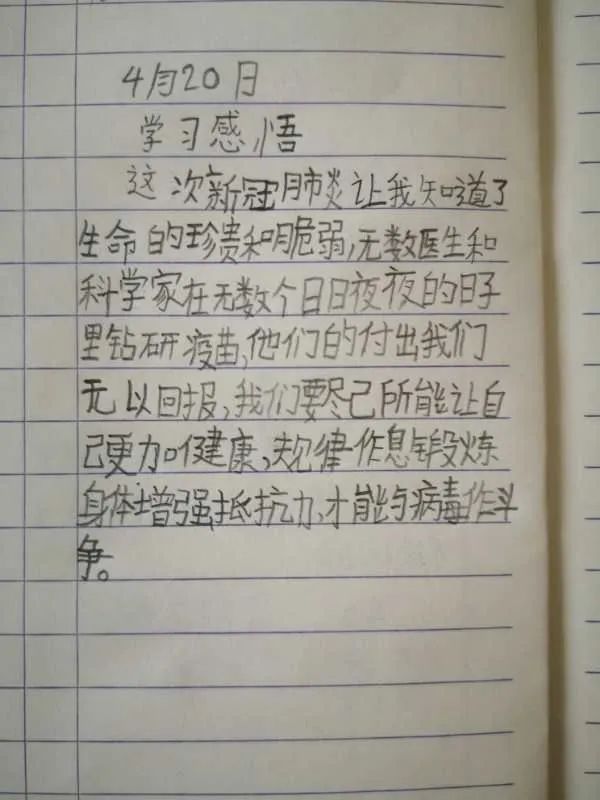 4月20日
学习感悟
这次新冠肺炎让我知道了
生命的珍贵和脆弱,无数医生和
科学家在无数个日日夜夜的日子
里钻研疫苗,他们的付出我们
无以回报,我们要尽己所能让自
己更加健康,规律作息锻炼
身体增强抵抗力,才能与病毒作斗
争。